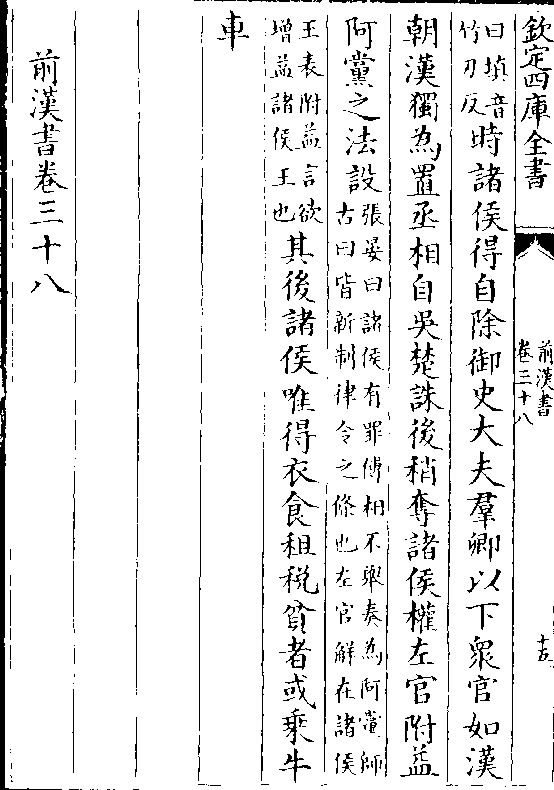 欽定四庫全書
前漢書
卷三十八
十五
曰填音
竹刃反
時諸侯得自除御史大夫羣卿以下衆官如漢
朝漢獨為置丞相自吳楚誅後稍奪諸侯權左官附益
阿黨之法設
張晏曰諸侯有罪傅相不舉奏為阿黨師
古曰皆新制律令之條也左官解在諸侯
王表附益言欲
增益諸侯王也
其後諸侯唯得衣食租税貧者或乘牛
車
前漢書卷三十八